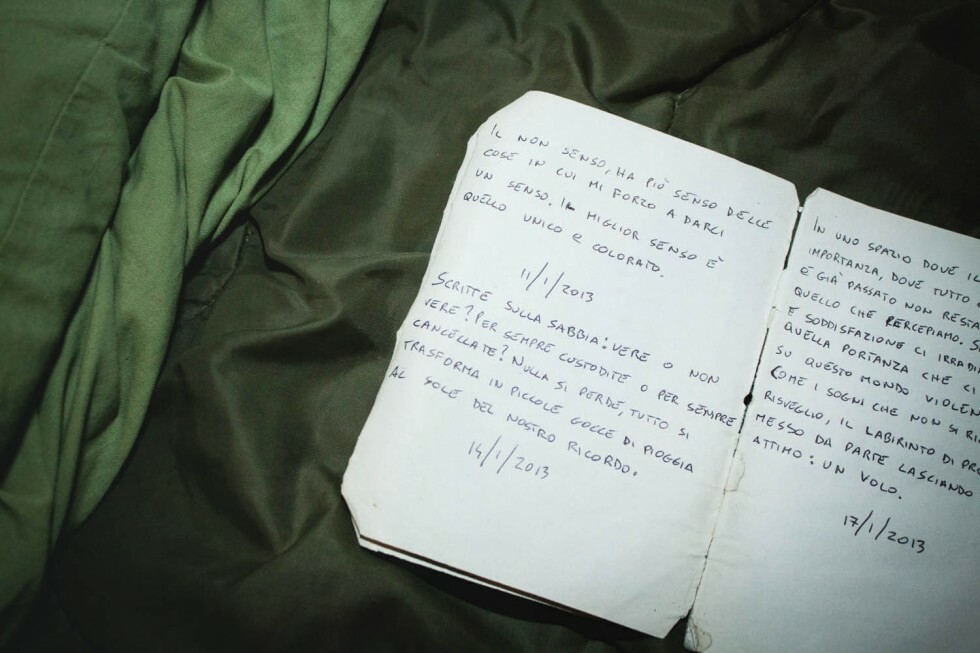 IL NON SENSO, HA PIÙ SENSO DELLE
COSE IN CUI MI FORZO A DARCI
UN SENSO. IL MIGLIOR SENSO È
QUELLO UNICO e COLORATO.
11/1/2013
SCRITTE SULLA SABBIA: VERE O NON
VERE? PER SEMPRE CUSTODITE O PER SEMPRE
CANCELLATE? NULLA SI PERDE, TUTTO SI
TRASFORMA IN PICCOLE GOCCE DI PIOGGIA
AL SOLE DEL NOSTRO RICORDO.
14/1/2013
IN UNO SPAZIO DOVE IL
IMPORTANZA, DOVE TUTTO
E GIÀ PASSATO NON
QUELLO CHE PERCEPIAMO.
E SODDISFAZIONE CI
QUELLA PORTANZA CHE CI
SU QUESTO MONDO
COME I SOGNI CHE NON SI
RISVEGLIO, IL LABIRINTO DI
MESSO DA PARTE LASCIANDO
ATTIMO: UN VOLO.
17/1/2013